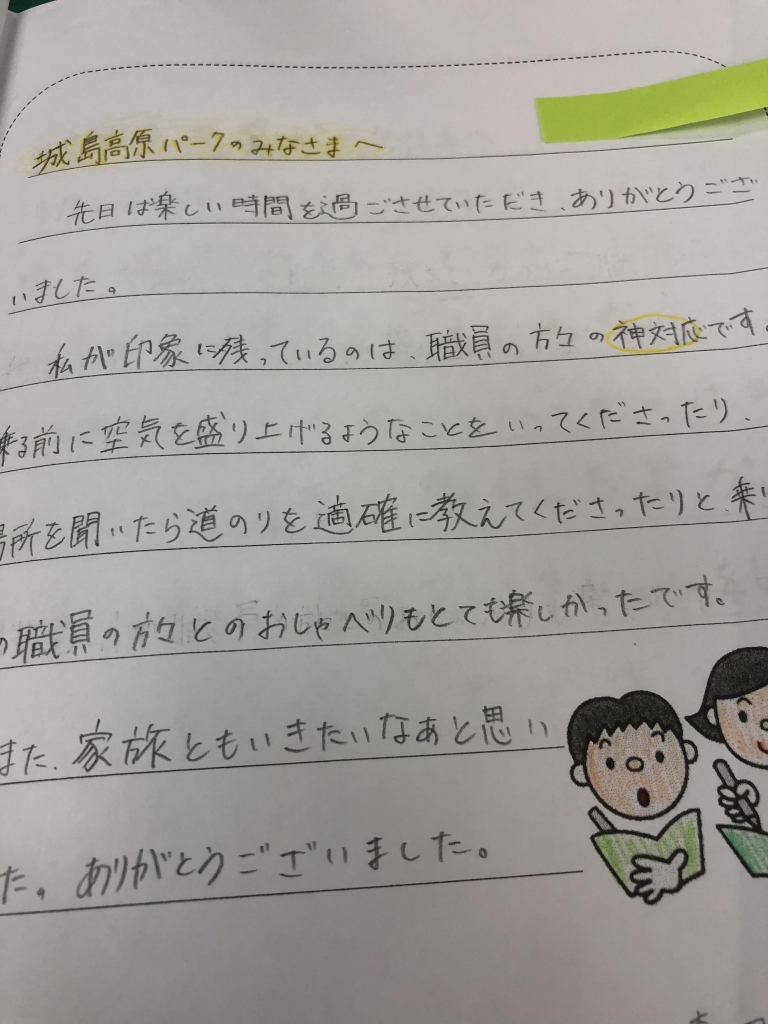 城島高原パークのみなさまへ
先日は楽しい時間を過ごさせていただき、ありがとうござ
いました。
私が印象に残っているのは、職員の方々の神対応です。
乗る前に空気を盛り上げるようなことをいってくださったり、
場所を聞いたら道のりを適確に教えてくださったりと、乗り
の職員の方々とのおしゃべりもとても楽しかったです。
また、家族ともいきたいなぁと思い
た。ありがとうございました。